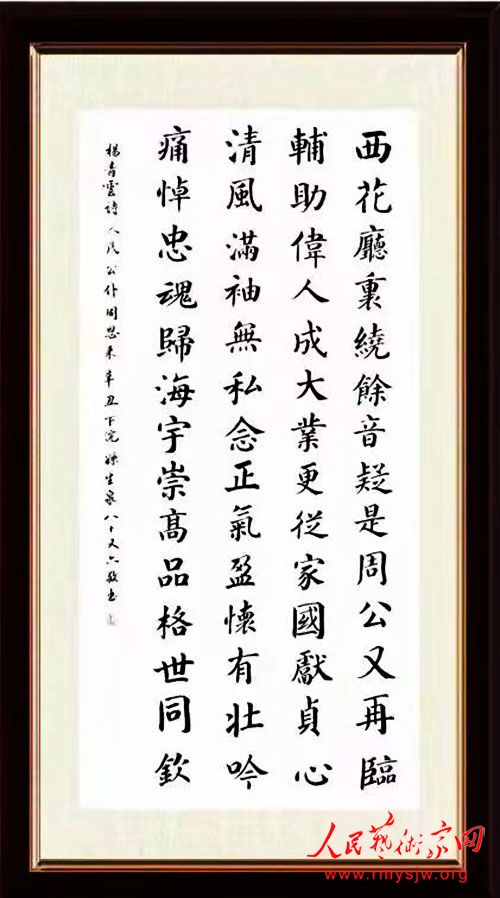 西花廳裏繞餘音疑是周公又再臨
輔助偉人成大業更從家國獻貞心
清風滿袖無私念正氣盈懷有壯吟
痛悼忠魂歸海宇崇高品格世同欽
楊青雲詩人民公仆周恩來辛丑下浣 生泉八十又六敬書
人民藝術家网
www.rmysjw.org